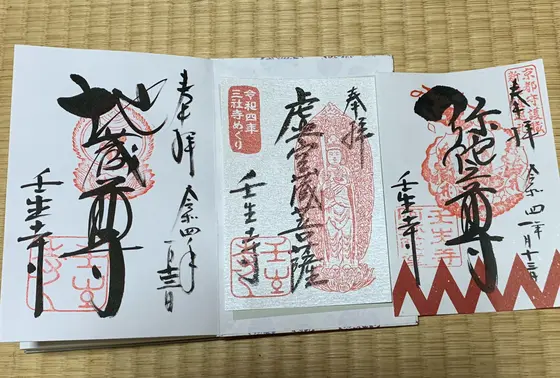 奉拝 令四年
一月十三日
地蔵尊
壬生寺
令和四年
三社寺めぐり
奉拝
虚空蔵菩薩
壬生寺
京都守護職
奉拝 令四年
一月十三日
弥陀三尊
壬生寺
壬生寺